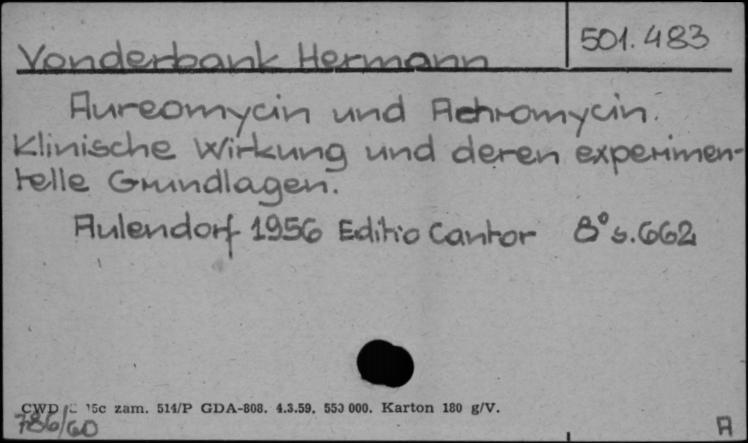 Vonderbank Hermann 501.483
Aureomycin und Achromycin.
Klinische Wirkung und deren experimen-
telle Grundlagen.
Aulendorf 1956 Editio Cantor 8° s.662
CWD 15c zam. 514/P GDA-808. 4.3.59. 550 000. Karton 180 g/V.
786/60
A